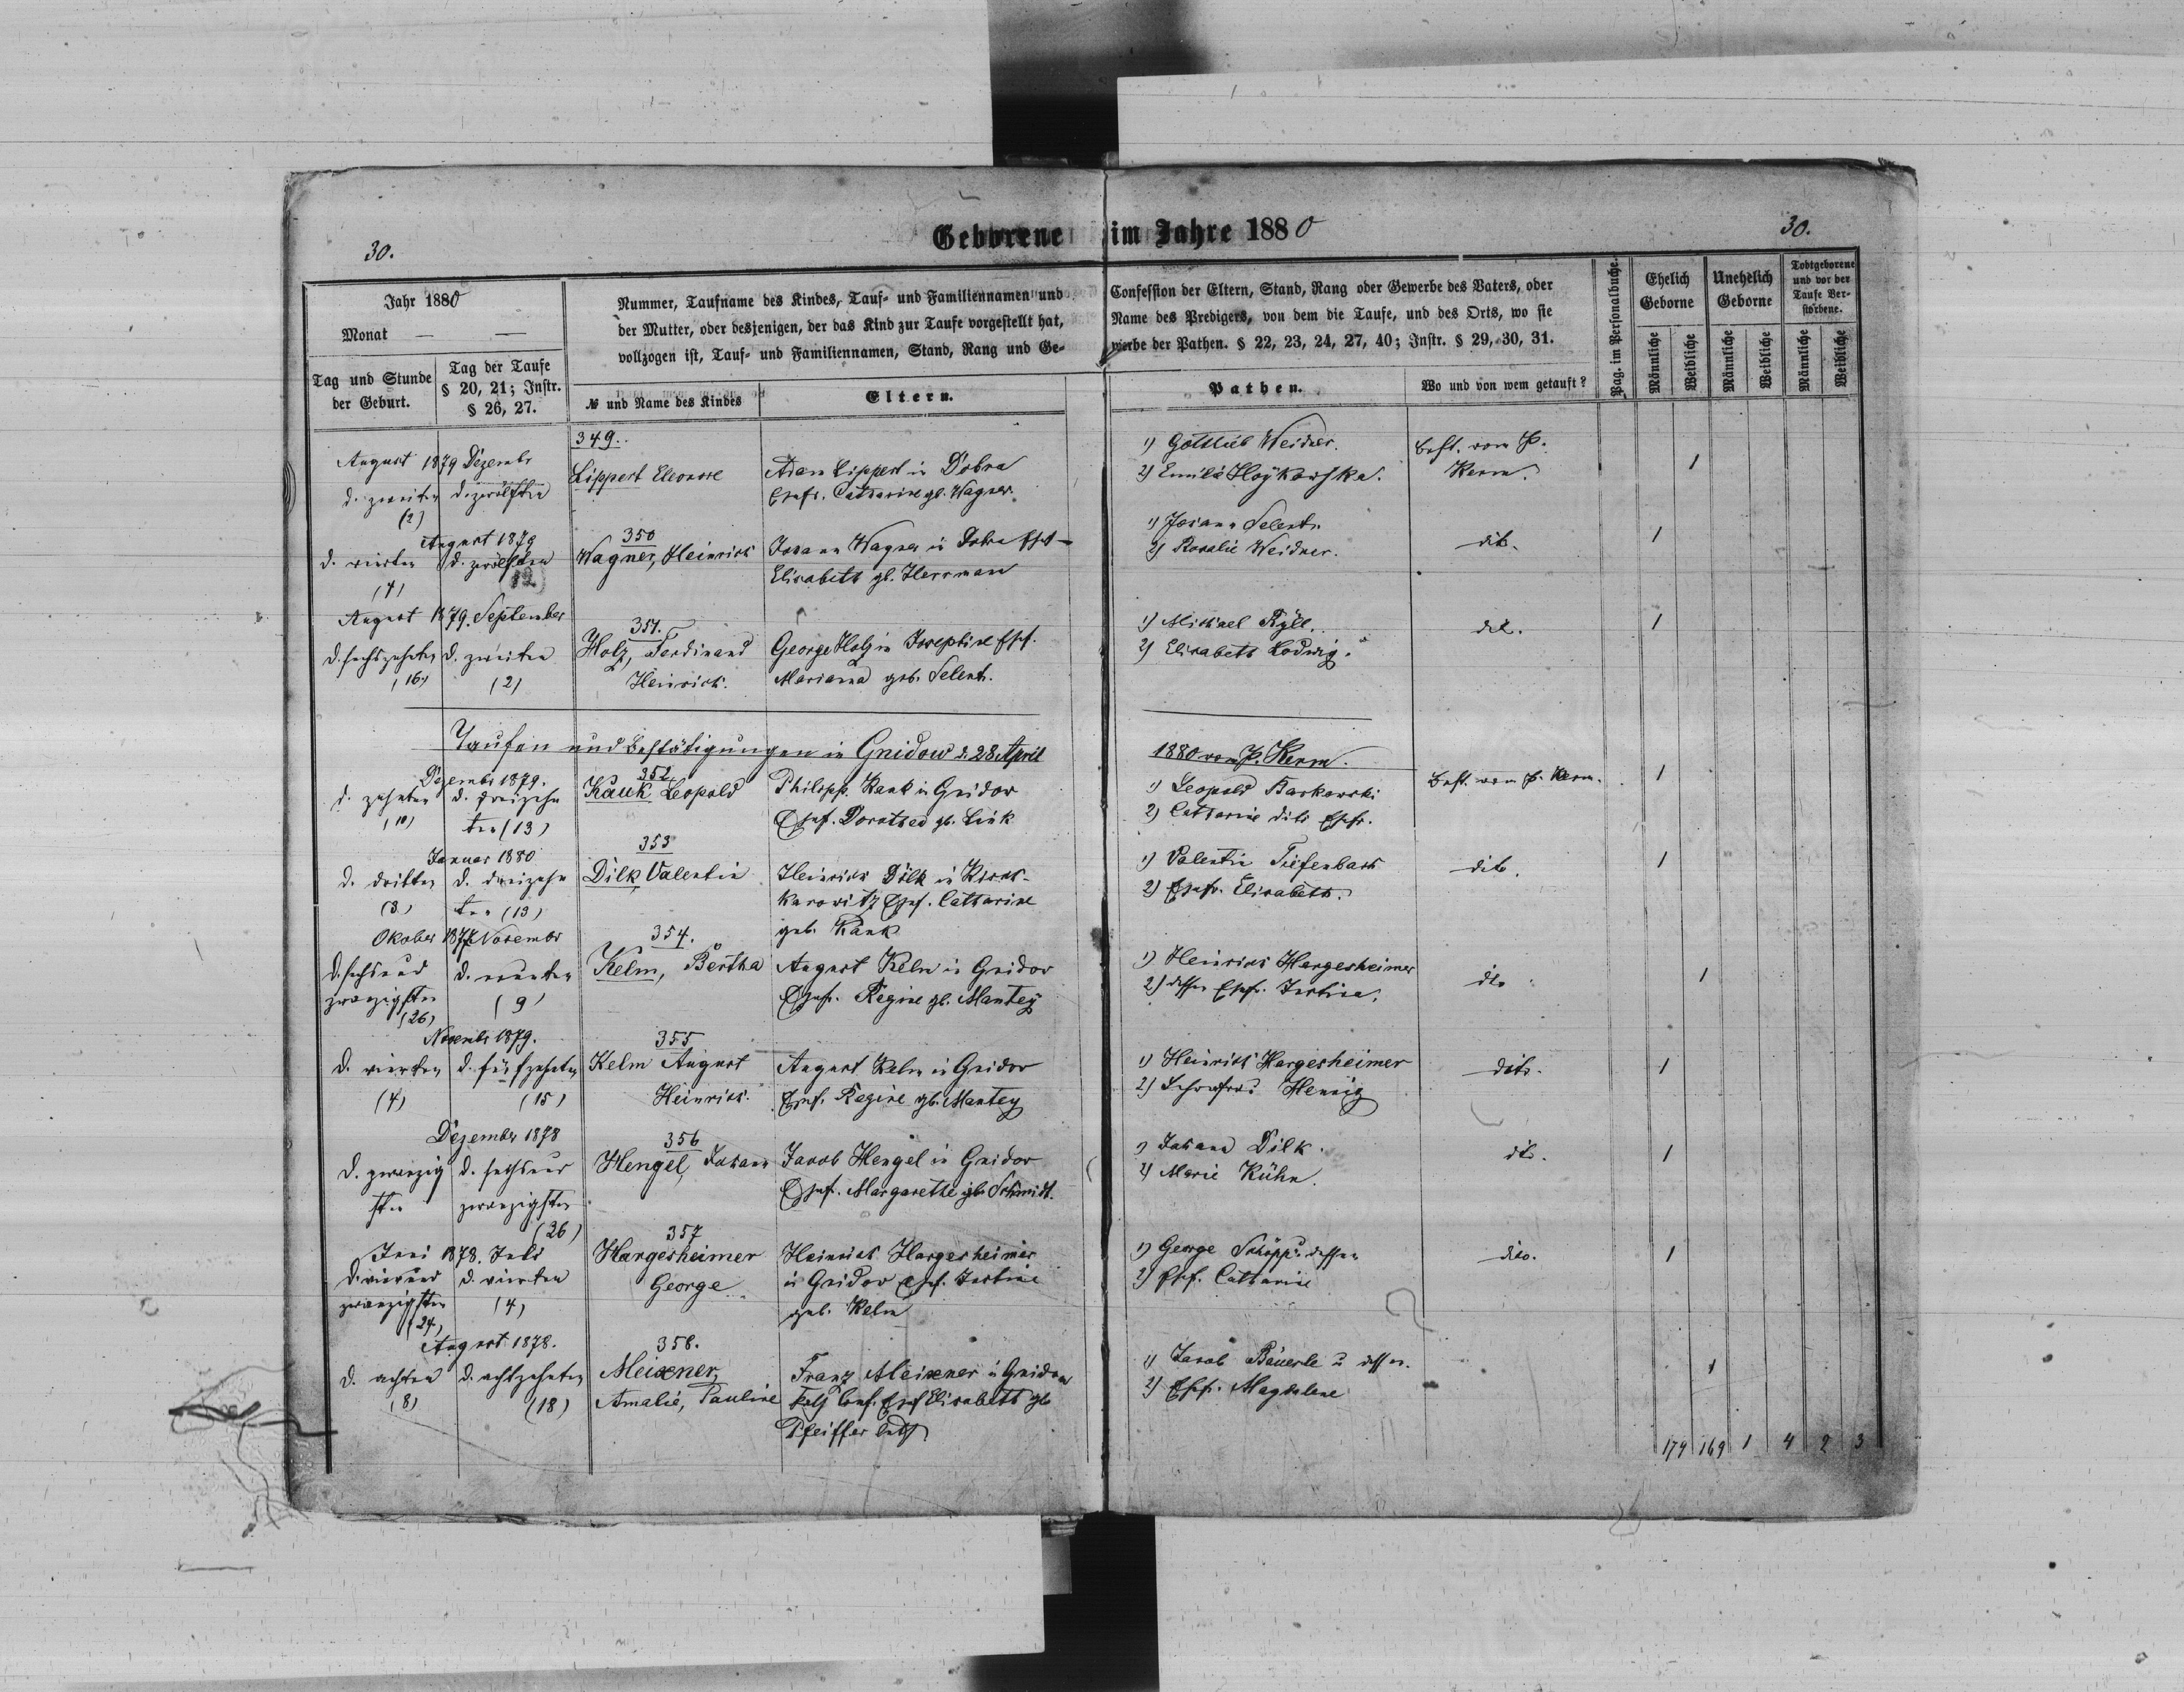 30.
Geborene im Jahre 1880
30.
Jahr 1880
Monat — —
Tag und Stunde der Geburt.
Tag der Taufe § 20, 21; Instr. § 26, 27.
Nummer, Taufname des Kindes, Tauf- und Familiennamen und
der Mutter, oder desjenigen, der das Kind zur Taufe vorgestellt hat,
vollzogen ist, Tauf- und Familiennamen, Stand, Rang und Ge-
№ und Name des Kindes
Eltern.
Confession der Eltern, Stand, Rang oder Gewerbe des Vaters, oder
Name des Predigers, von dem die Taufe, und des Orts, wo sie
werbe der Pathen. § 22, 23, 24, 27, 40; Instr. § 29, 30, 31.
Pathen.
Wo und von wem getauft?
Pag. im Personalbuche.
Ehelich Geborne
Unehelich Geborne
Todtgeborene und vor der Taufe Verstorbene.
Männliche
Weibliche
Männliche
Weibliche
Männliche
Weibliche
349.
August 1879 Dezembr
d. zweiten d. zwölften
(2)
Lippert Eleonore
Adam Lippert in Dobra
Ehefr. Catharine gb. Wagner.
1) Gottlieb Weidner.
2) Emilie
best. vom P.
Kerm.
1
August 1879
350
d. vierten d. zwölften
(4)
Wagner, Heinrich
Johann Wagner in Dobra
Elisabeth gb. Herrman
1) Johann Selent.
2) Rosalie Weidner.
dito.
1
August 1879. September
351.
d. sechszehnten d. zweiten
(16) (2)
Holz, Ferdinand
Heinrich.
George Holz in Josephine Ehf.
Marianna geb. Selent.
1) Michael Ryll.
2) Elisabeth Lodwig.
dit.
1
Taufen und Bestätigungen in Gnidow d. 28 April
1880 vom P. Kerm.
Dezembr 1879.
352
d. zehnten d. dreizehn
(10) ten (13)
Kauk Leopold
Philipp Kauk in Gnidow
Ehef. Dorothea gb. Link
1) Leopold Barkowski
2) Catharine dito Ehefr.
Best. vom P. Kerm.
1
Januar 1880
353
d. dritten d. dreizehn
(3.) ten (13)
Dilk Valentin
Heinrich Dilk in
Ehef. Catharine
geb. Kauk
1) Valentin Tiefenbach
2) Ehefr. Elisabeth.
dito.
1
Oktober 1877 Novembr
354.
d. sechsund d. neunten
zwanzigsten (9)
(26)
Kelm, Bertha
August Kelm in Gnidow
Ehefr. Regine gb. Mantey
1) Heinrich Hargesheimer
2) dessen Ehefr. Justine.
dito
1
Novembr 1879.
355
d. vierten d. fünfzehnten
(4) (15)
Kelm August
Heinrich.
August Kelm in Gnidow
Ehef. Regine gb. Mantey
1) Heinrich Hargesheimer
2) Hennig
dito.
1
Dezember 1878
356
d. zwanzig d. sechsund
sten zwanzigsten
(26)
Hengel, Johann
Jacob Hengel in Gnidow
Ehef. Margarethe gb. Schmidt.
1) Johann Dilk.
2) Marie Kühn.
dito.
1
Juni 1878. Juli
357
d. vierund d. vierten
zwanzigsten (4)
(24)
Hargesheimer
George
Heinrich Hargesheimer
in Gnidow Ehef. Justine
geb. Kelm
1) George Schöpp u. dessen
2) Ehef. Catharine
dito.
1
August 1878.
358.
d. achten d. achtzehnten
(8) (18)
Meixner,
Amalie, Pauline
Franz Meixner in Gnidow
kath Conf. Ehef Elisabeth gb
Pfeiffer luth
1) Jacob Bäuerle u. dessen
2) Ehef. Magdalene
1
174 169 1 4 2 3